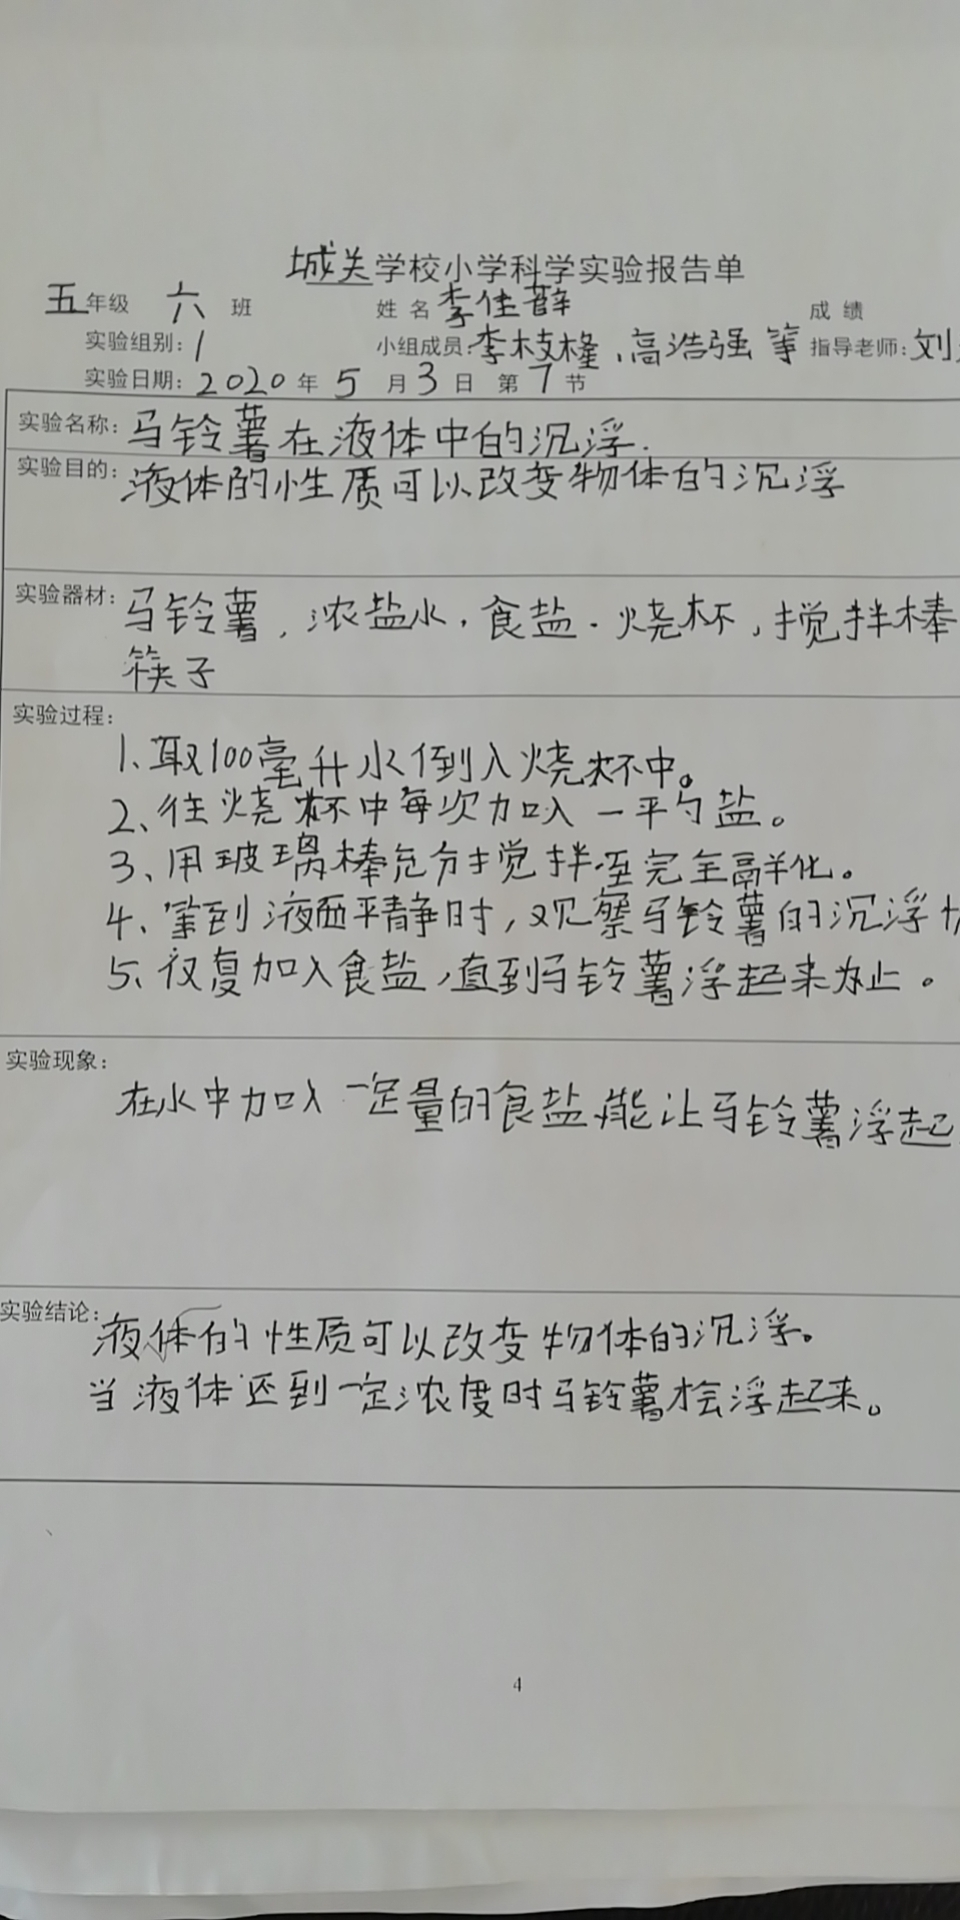 城关学校小学科学实验报告单
五年级 六 班 姓 名 李佳薛 成 绩
实验组别：1 小组成员：李枝 、高浩强 等 指导老师：刘
实验日期：2020 年 5 月 3 日 第 7 节
实验名称：马铃薯在液体中的沉浮.
实验目的：液体的性质可以改变物体的沉浮
实验器材：马铃薯，浓盐水，食盐．烧杯，搅拌棒
筷子
实验过程：
1、取100毫升水倒入烧杯中。
2、往烧杯中每次加入一平勺盐。
3、用玻璃棒充分搅拌至完全融化。
4、等到液面平静时，观察马铃薯的沉浮
5、反复加入食盐，直到马铃薯浮起来为止。
实验现象：
在水中加入一定量的食盐，能让马铃薯浮起
实验结论：
液体的性质可以改变物体的沉浮。
当液体达到一定浓度时马铃薯才会浮起来。
4